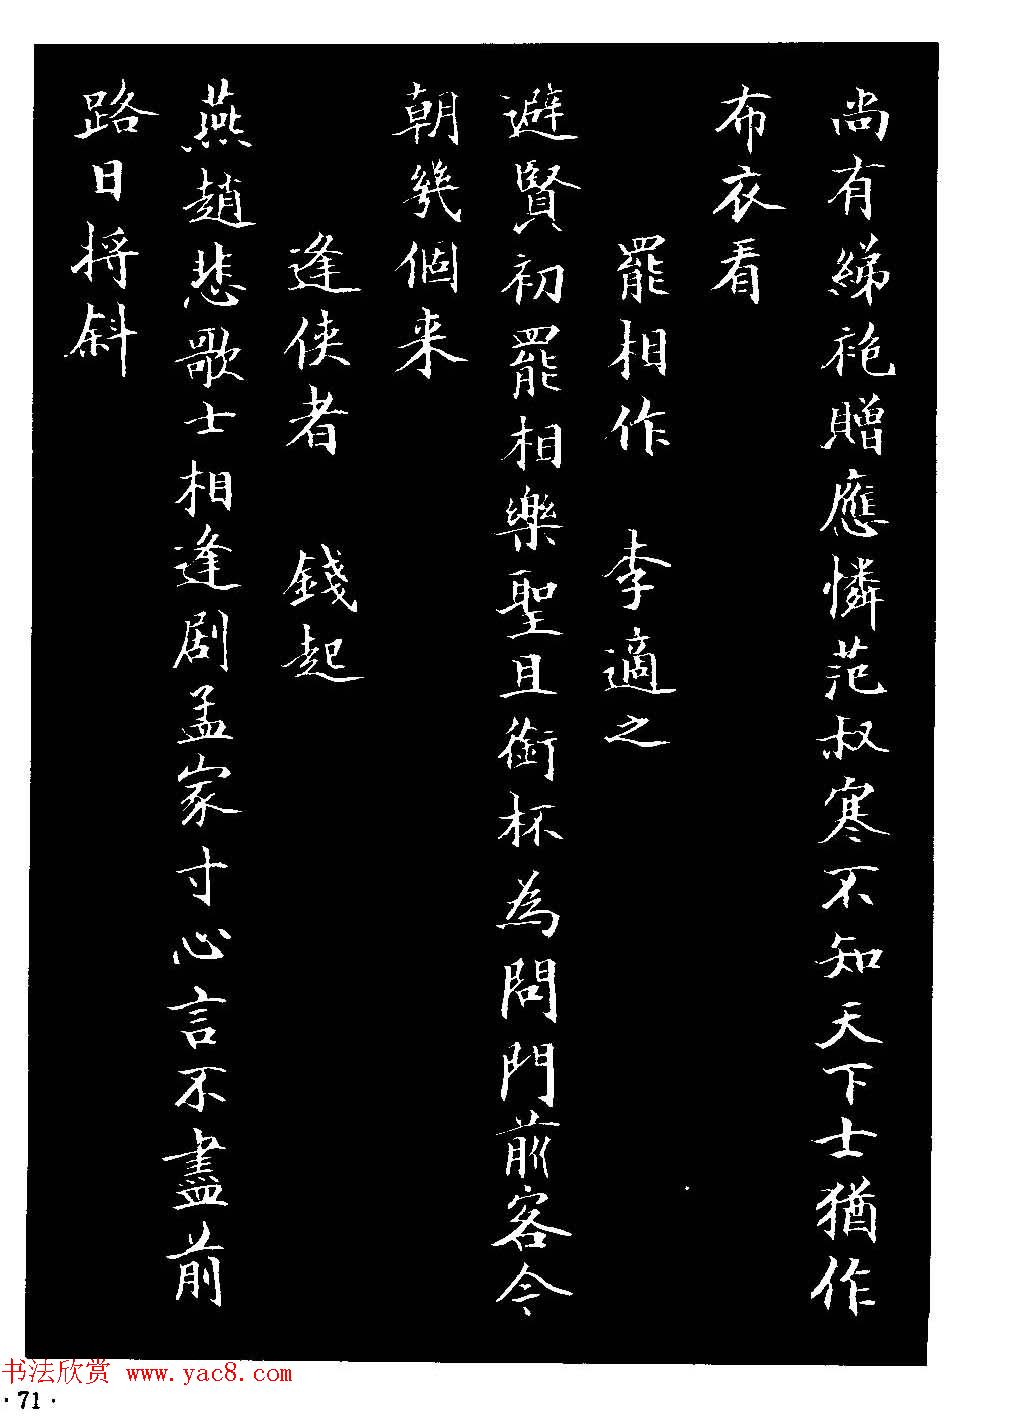 尚有綈袍贈應憐范叔寒不知天下士猶作
布衣看
罷相作 李適之
避賢初罷相樂聖且銜杯為問門前客今
朝幾個来
逢俠者 錢起
燕趙悲歌士相逢劇孟家寸心言不盡前
路日将斜
书法欣赏 www.yac8.com
·71·